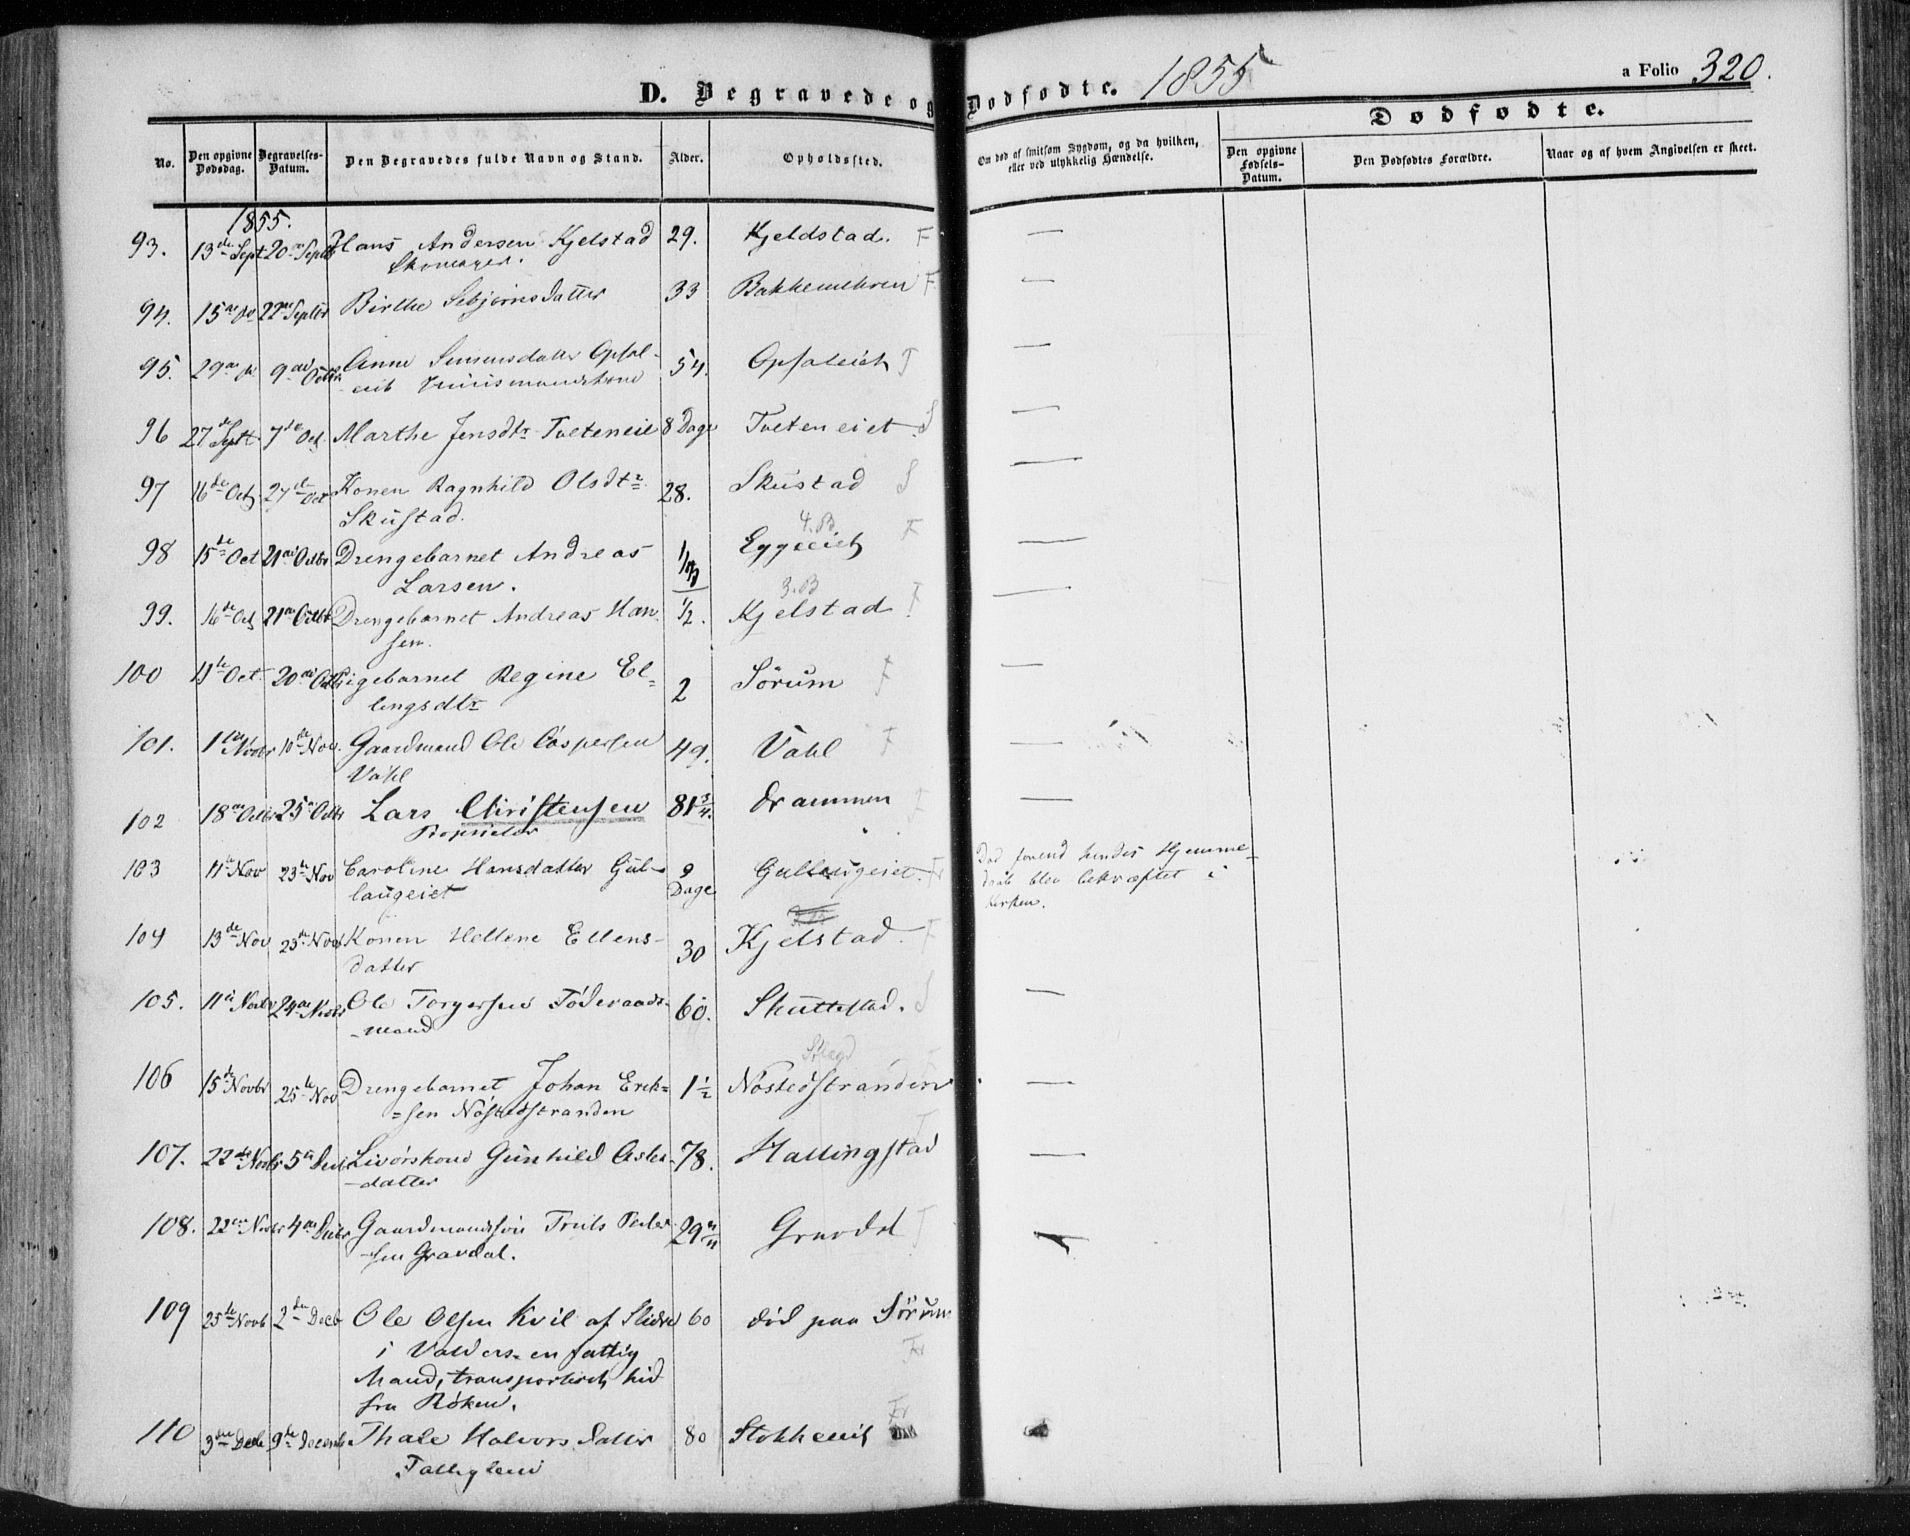 D. Begravede og Dødfødte. 1855
a Folio 320.
Dødfødte.
No.
Den opgivne Dødsdag.
Begravelses-Datum.
Den Begravedes fulde Navn og Stand.
Alder.
Opholdssted.
Om død af smitsom Sygdom, og da hvilken,
eller ved ulykkelig Hændelse.
Den opgivne Fødsels-Datum.
Den Dødfødtes Forældre.
Naar og af hvem Angivelsen er skeet.
1855.
93. 13de Sept 20de Septbr Hans Andersen Kjelstad 29. Kjeldstad. F —
Skomager.
94. 15de do 22de Septbr Birthe Sebjørnsdatter 33 Bakkemehren F —
95. 29de do 9de Octbr Anne Simensdatter Opsal- 54. Opsaleiet F —
eiet Huusmandskone
96 27de Sept 7de Oct Marthe Jensdtr Tveteneie 8 Dage Tveteneiet S —
97 16de Oct 27de Oct Konen Ragnhild Olsdtr 28. Skustad S —
Skustad.
4. B
98 15de Oct 21de Octbr Drengebarnet Andreas Eggeeiet F —
Larsen.
3. B
99. 16de Oct 21de Octbr Drengebarnet Andreas Han 1/2. Kjelstad F —
sen.
100 11te Oct 20de Octbr Pigebarnet Regine El= 2 Sørum F —
lingsdtr
101. 1ste Novbr 10de Nov. Gaardmand Ole Caspersen 49. Vahl F —
Vahl
102 18de Octbr 25de Octbr Lars Christensen 81 3/4. Drammen —
Proprietær
103 11te Nov 23de Nov Caroline Hansdatter Gul- 9 Dage Gullaugeiet. Fr Død forend hendes Hjemme-
laugeiet daab blev bekræftet i
kirken.
104 13de Nov 23de Nov Konen Hellene Ellens- 30 Kjelstad. F
datter
105. 11te Novbr 24de Novbr Ole Torgersen Føderaads- 60. Skuttestad. S —
-mand
106 15de Novbr 25de Nov Drengebarnet Johan Erik= 1 1/2 Nøstedstranden —
=sen Nøstedstranden
107. 22de Novbr 5te Decbr Livørskone Gunhild Asles- 78. Hallingstad —
-datter
108. 22de Novbr 4de Decbr Gaardmandssøn Truls Peder- 29 Gravdal
-sen Gravdal.
109 25de Novb 2den Decb Ole Olsen Kvil af Slidre 60 død paa Sørum
i Valders - en fattig Fr
Mand, transporteret hid
fra Røken.
Fr
110 3die Decb 9de Decemb Thale Halvorsdatter 80 Stokkeeiet
Fattiglem